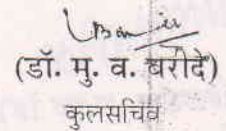 (डॉ. मु. व. बरीदे)
कुलसचिव